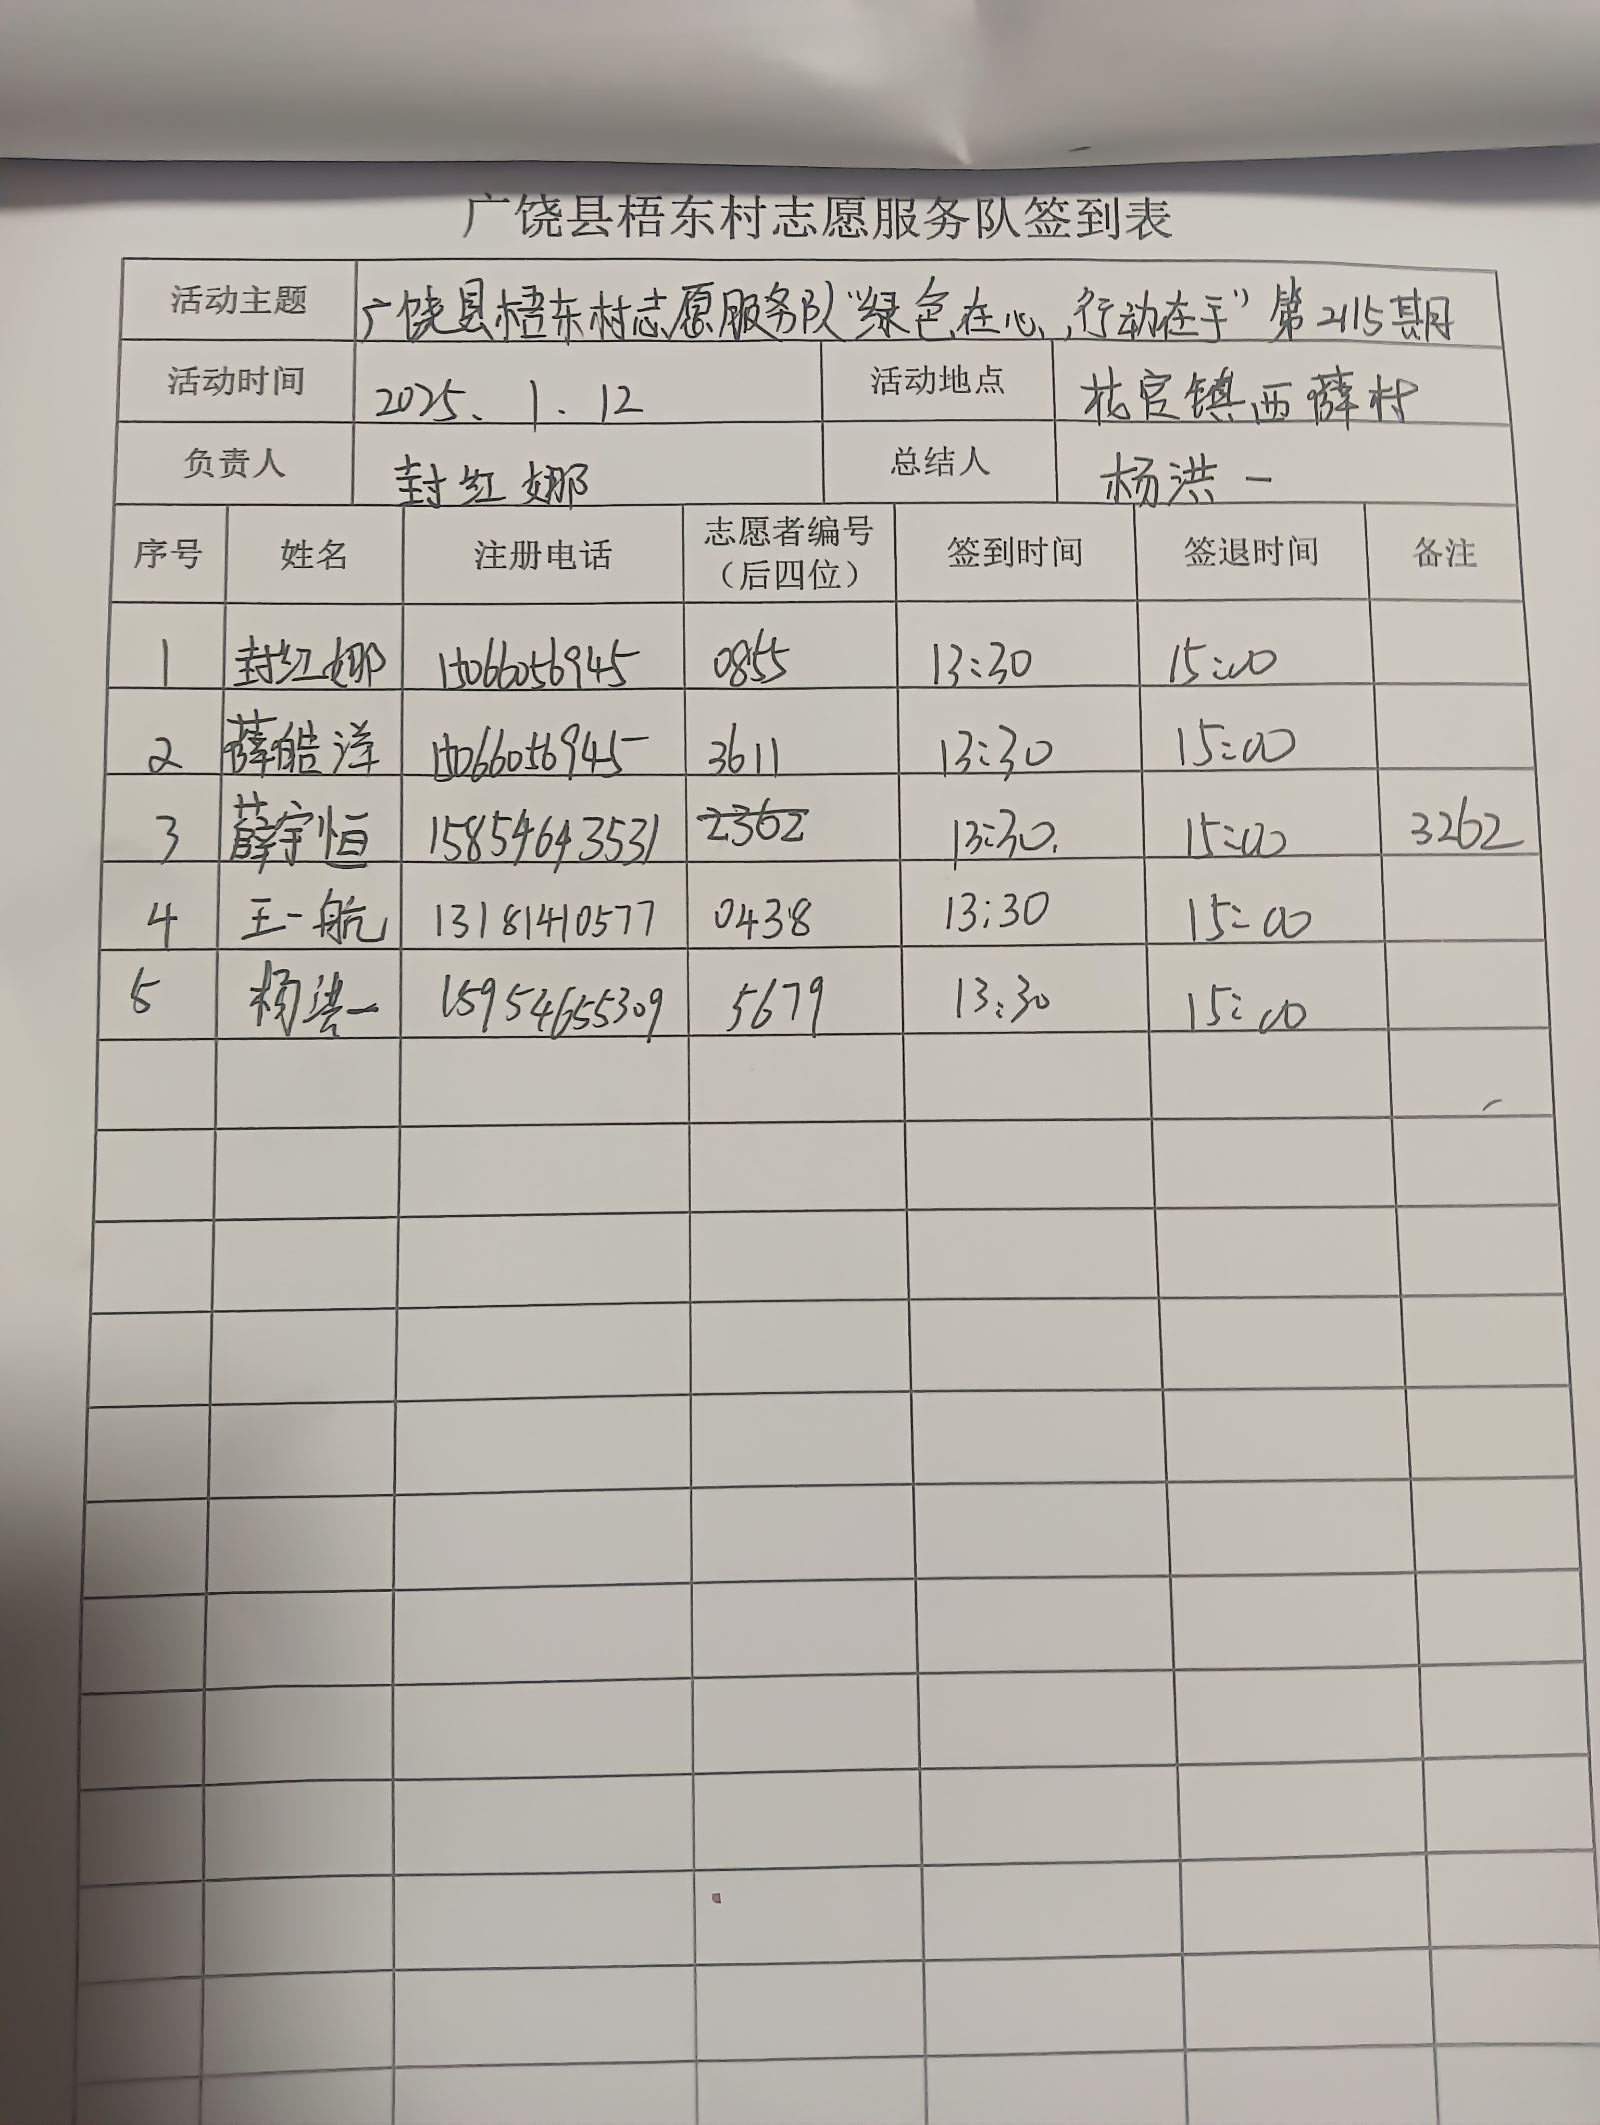 广饶县梧东村志愿服务队签到表
活动主题 广饶县梧东村志愿服务队“绿色在心,行动在手”第2115期
活动时间 2025、1.12 活动地点 花官镇西薛村
负责人 封红娜 总结人 杨洪一
序号 姓名 注册电话 志愿者编号（后四位） 签到时间 签退时间 备注
1 封红娜 15066056945 0855 13:30 15:00
2 薛皓洋 15066056945 3611 13:30 15:00
3 薛宇恒 15854643531 2362 13:30. 15:00 3262
4 王一航 13181410577 0438 13:30 15:00
5 杨洪一 15954655309 5679 13:30 15:00